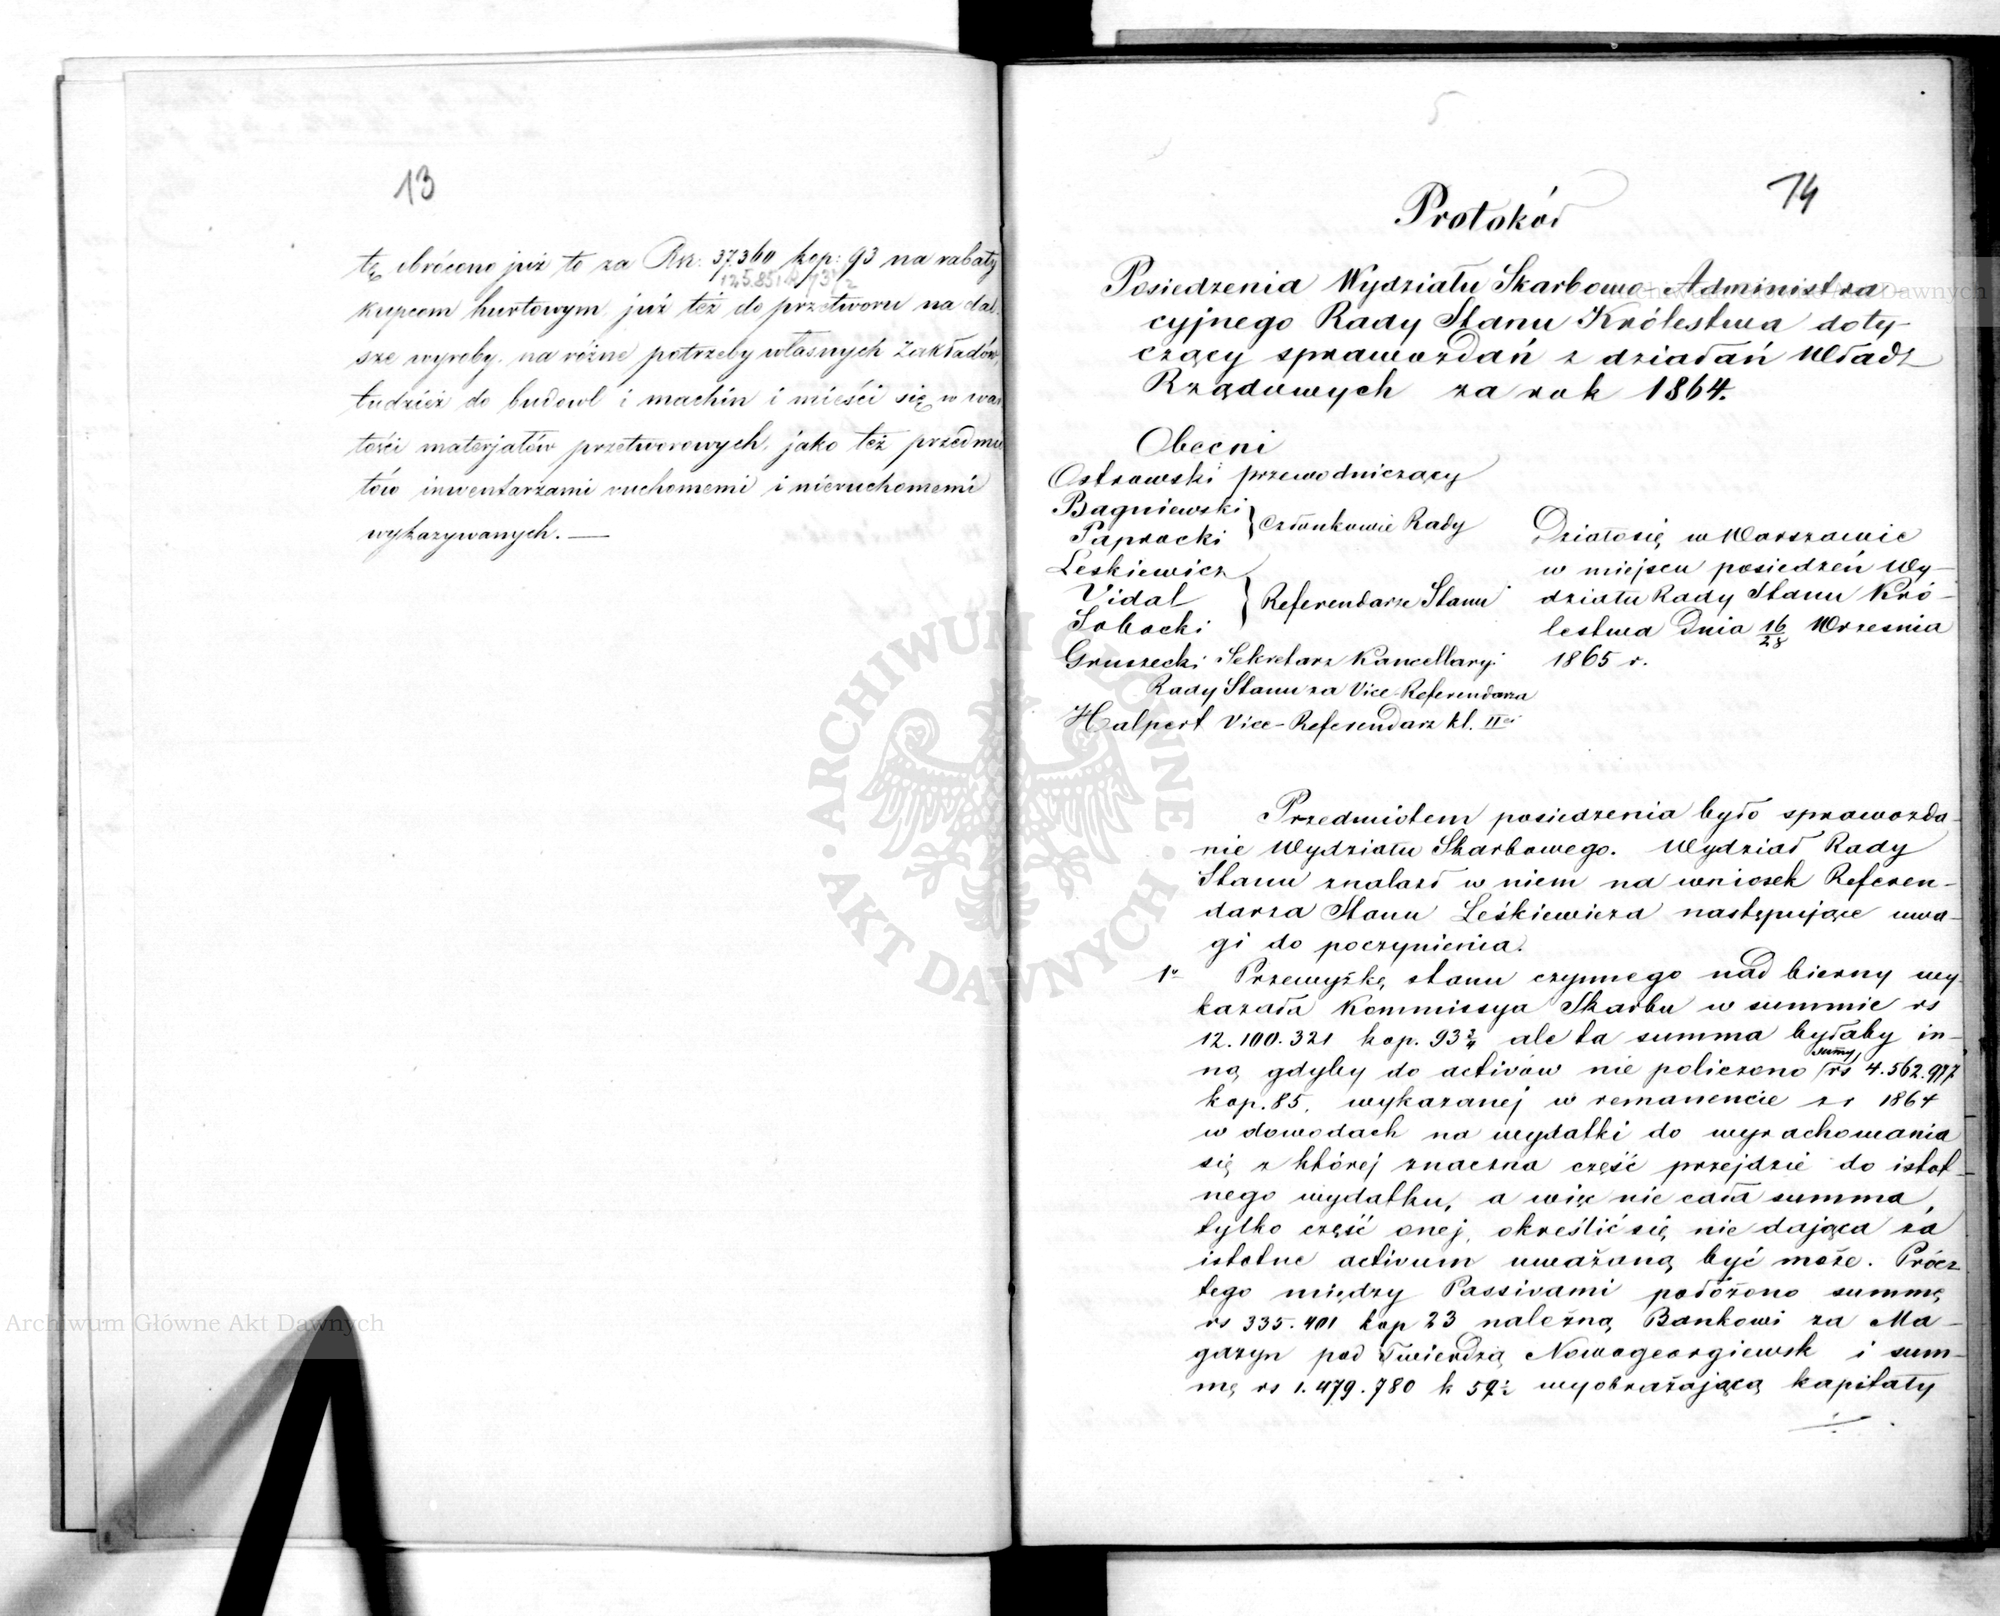 13
tę obrócono już to za Rsr: 37.360 kop: 93 na rabaty
kupcom hurtowym, już też do przetworu na dal-
sze wyroby, na różne potrzeby własnych Zakładów,
tudzież do budowl i machin i mieści się w war
tości materjałów przetworowych, jako też przedmio
tów inwentarzami ruchomemi i nieruchomemi
wykazywanych. —
14
Protokół
Posiedzenia Wydziału Skarbowo-Administra-
cyjnego Rady Stanu Królestwa doty-
czący sprawozdań z działań Władz
Rządowych za rok 1864.
Obecni
Ostrowski przewodniczący
Bagniewski
Paprocki
Członkowie Rady
Leśkiewicz
Vidal
Sobocki
Referendarze Stanu
Gruszecki Sekretarz Kancellaryi
Rady Stanu za Vice-Referendarza
Halpert Vice-Referendarz kl. IIei
Działo się w Warszawie
w miejscu posiedzeń Wy-
działu Rady Stanu Kró-
lestwa Dnia 16/28 Września
1865 r.
Przedmiotem posiedzenia było sprawozda-
nie Wydziału Skarbowego. Wydział Rady
Stanu znalazł w niem na wniosek Referen-
darza Stanu Leśkiewicza następujące uwa-
gi do poczynienia.
1o Przewyżkę stanu czynnego nad bierny wy-
kazała Kommissya Skarbu w summie rs
12.100.321 kop. 93 3/4 ale ta summa byłaby in-
ną gdyby do activów nie policzono summy rs 4.562.917
kop. 85, wykazanej w remanencie z r 1864
w dowodach na wydatki do wyrachowania
się z której znaczna część przejdzie do istot-
nego wydatku, a więc nie cała summa,
tylko część onej, określić się nie dająca za
istotne activum uważaną być może. Prócz
tego między Passivami podłożono summę
rs 335.401 kop 23 należną Bankowi za Ma-
gazyn pod Twierdzą Nowogeorgiewsk i sum-
mę rs 1.479.780 k 59 1/2 wyobrażającą kapitały
ARCHIWUM GŁÓWNE AKT DAWNYCH
Archiwum Główne Akt Dawnych
Archiwum Główne Akt Dawnych